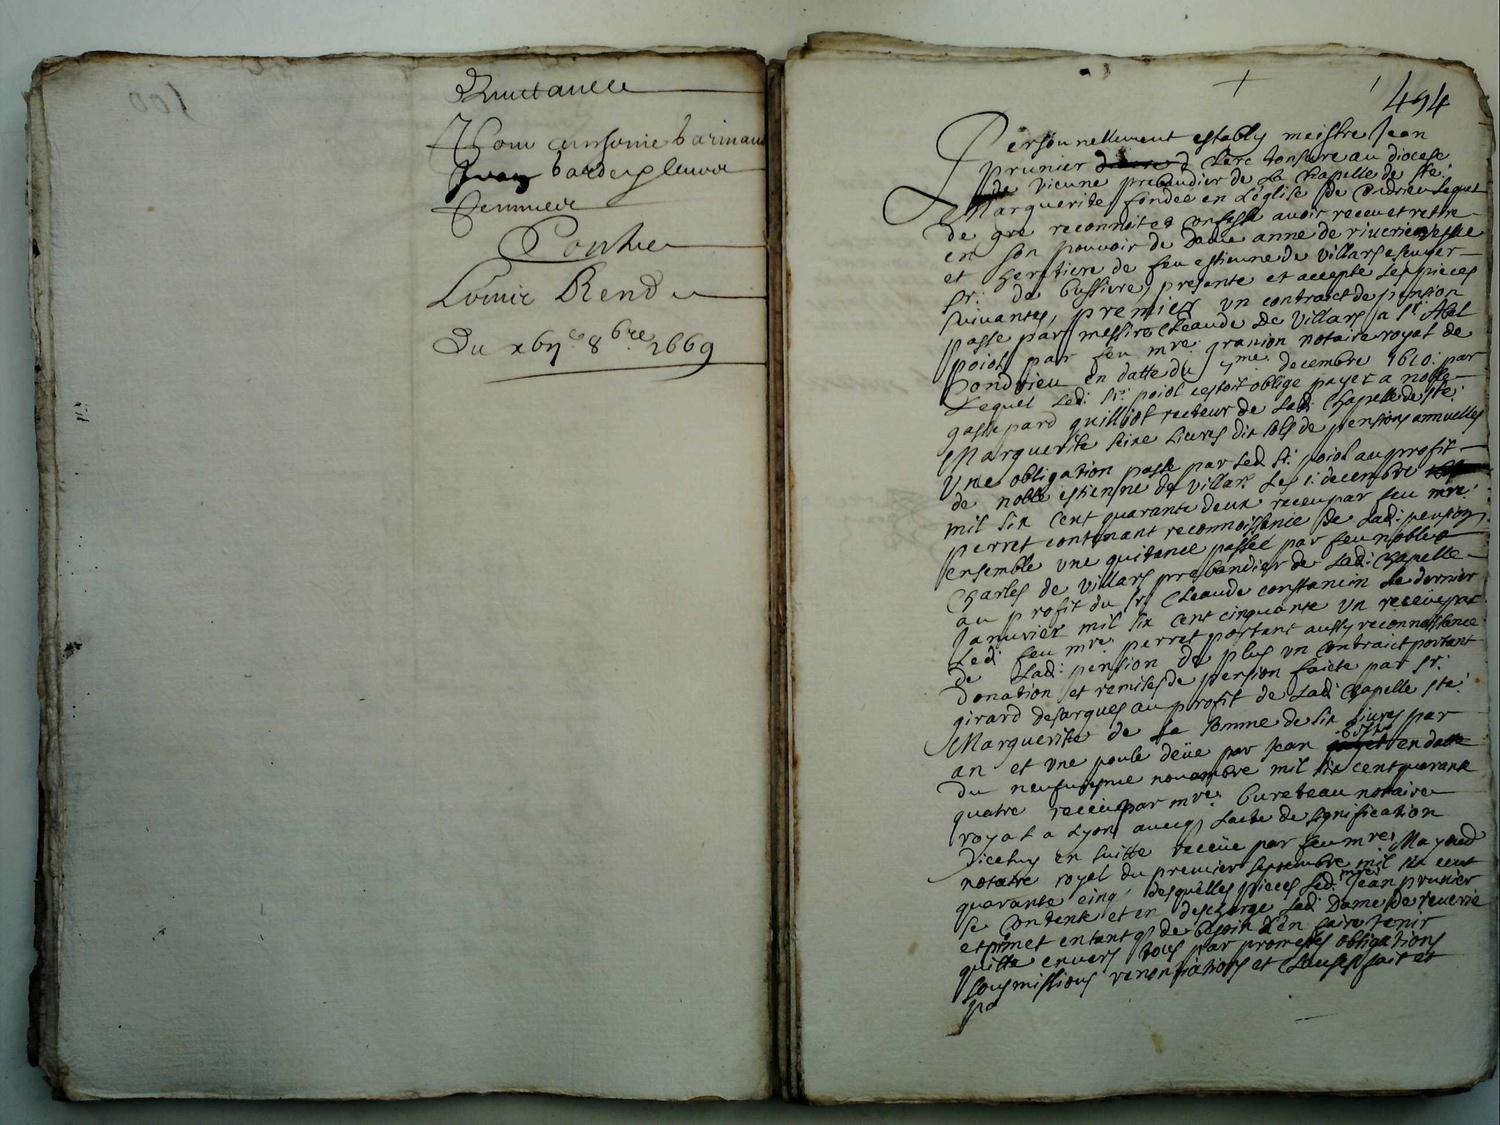 Quittance
Pour anthoine barinau
bardex pleuve
Contre
Louis Rende
Du xbij.e 8bre 1669
494
Personnellement estably meistre Jean
prunier Clerc tonsure au diocese
de vienne prebandier de la Chapelle de Ste
Marguerite fondée en l'église de Condrieu lequel
de gre reconnoit et confesse avoir receu et retire
en son pouvoir de Dame anne de riverie vefve
et heretiere de feu estienne de villars escuyer
sr. de bussiere, presente et accepte les pieces
suivantes, premier un contraict de pension
passe par messire Cleaude de villars a sr Abel
poiol par feu mre. granion notaire royal de
Condrieu en datte du yme. decembre 1620. par
Lequel Led. sr. poiol cestoit oblige payer a noble
gaspard quilliot recteur de lad. Chapelle de ste.
Marguerite seize Livres dix sols de pensions annuelles
Une obligation passe par led. sr. poiol au profit
de noble estienne de villars Le 1. decembre
mil six Cent quarante deux receu par feu mre.
perret contenant reconnoissance de Lad. pension
ensemble une quitance passee par feu noble
Charles de villars prebandier de Lad. Chapelle
au profit du sr. Cleaude constancin le dernier
Janvier mil six Cent cinquante un receue par
Led. feu mre. perret portant aussy reconnoissance
de Lad. pension de plus un contraict portant
Donation et remises de pension faicte par sr.
girard desargues au profit de Lad. Chapelle ste.
Marguerite de la somme de six Livres par
an et une poule deüe par Jean en datte
du neufviesme novambre mil six cent quarante
quatre receu par mre. bureteau notaire
royal a Lyon avecq Lacte de signification
Dicelluy en suitte receüe par feu mre. Mayoud
notaire royal du premier septembre mil six cent
quarante cinq, desquelles pieces Led. mre Jean prunier
se Contente et en descharge Lad. Dame de reverie
et promet entant q de besoin d'en faire tenir
quitte envers tous par promesses obligations
sousmissions renonciations et Clauses fait et
pa